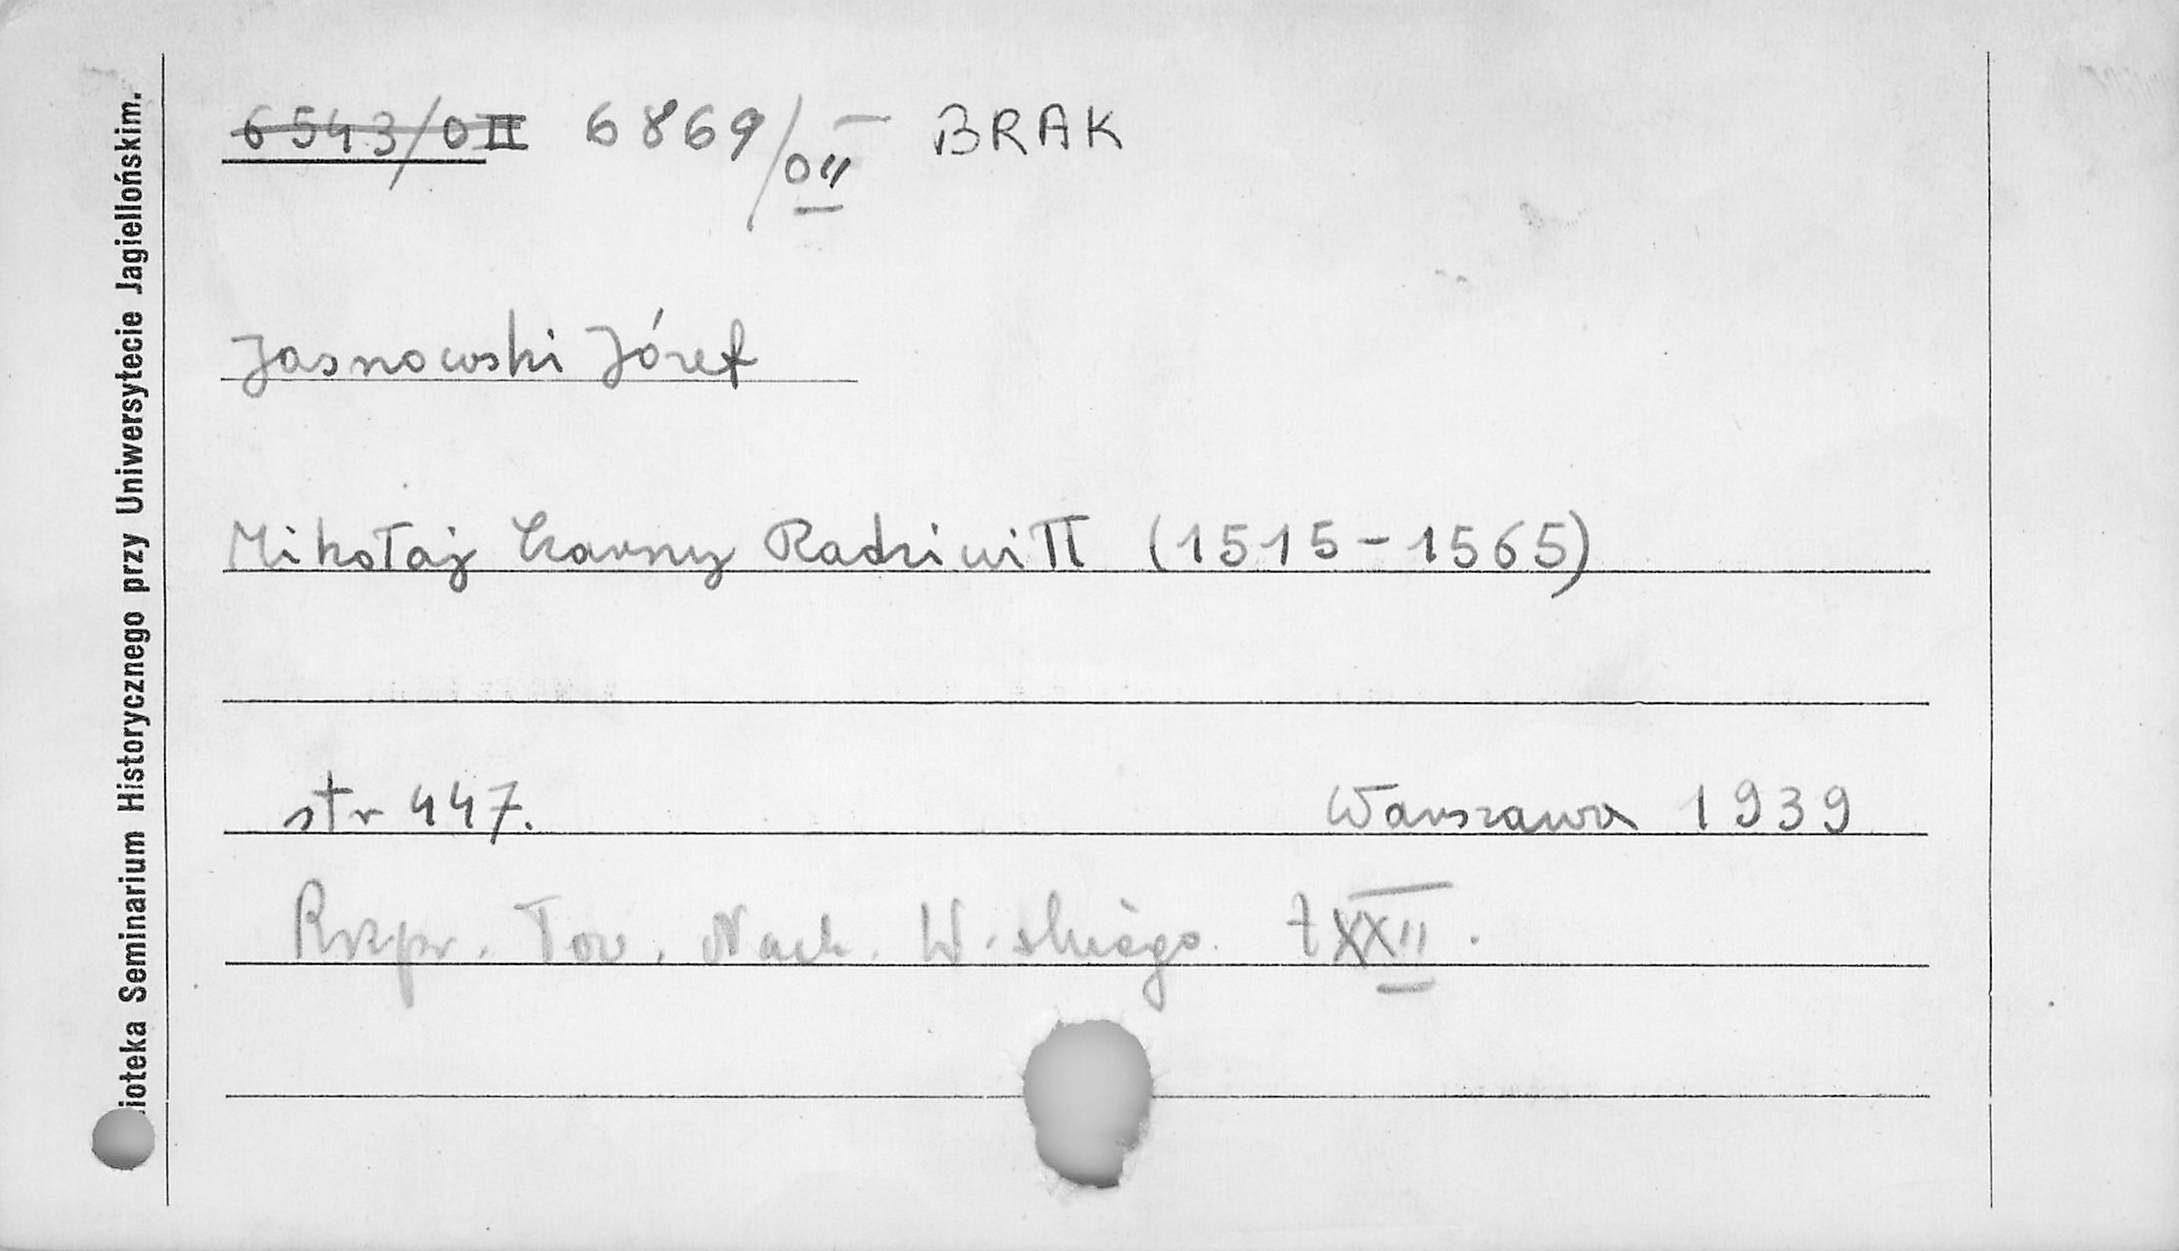 6543/0II 6869/0II BRAK
Jasnowski Józef
Mikołaj Czarny Radziwiłł (1515-1565)
str 447. Warszawa 1939
Rozpr. Tow. Nauk. W-skiego. t XXII.
ioteka Seminarium Historycznego przy Uniwersytecie Jagiellońskim.